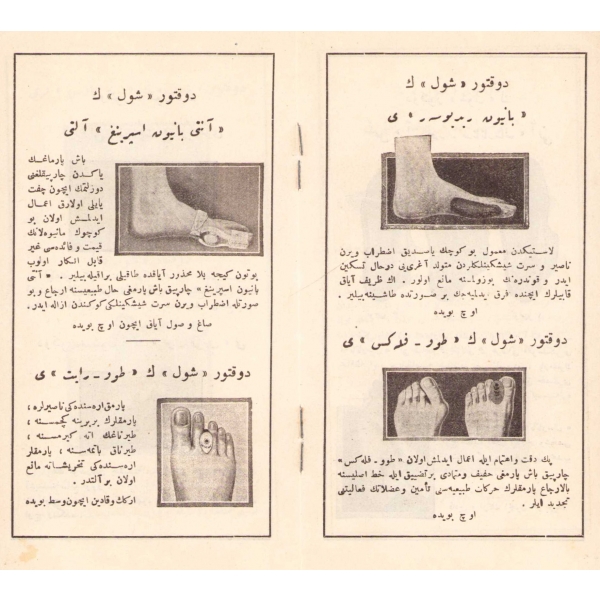 دوقتور «شول» ك
« بانیون ریدیوسر » ی
لاستیكدن معمول بو كوچك یاصدیق اضطراب ویرن
ناصیر و سرت شیشكینلكلردن متولد آغریی در حال تسكین
ایدر و قوندره نك بوزولمسنه مانع اولور . اك ظریف آیاق
قابیلرك ایچنده فرق ایدلمیه جك بر صورتده طاشینه بیلیر .
اوچ بویده
دوقتور «شول» ك «طور - فلاكس» ی
پك دقت و اهتمام ایله اعمال ایدلمش اولان « طوو - فله كس »
چارپیق باش پارمغی خفیف و متمادی بر تضییق ایله خط اصلیسنه
بالارجاع پارمقلرك حركات طبیعیه سی تأمین و عضلاتك فعالیتنی
تجدید ایلر .
اوچ بویده
دوقتور «شول» ك
« آنتی بانیون اسپرینغ » آلتی
باش پارمانحك
یاكدن چارپیقلغنی
دوزلتمك ایچون چفت
یایلی اولارق اعمال
ایدلمش اولان بو
كوچوك
قیمت و فائده سی غیر
قابل انكار اولوب
بوتون كیجه بلا محذور آیاقده طاقیلی براقیله بیلیر . « آنتی
بانیون اسپرینغ » چارپیق باش پارمغی حال طبیعیسنه ارجاع و بو
صورتله اضطراب ویرن سرت شیشكینلكی كوكندن ازاله ایدر .
صاغ و صول آیاق ایچون اوچ بویده
دوقتور «شول» ك «طور - رایت» ی
پارمق اره سنده كی ناصیرلره ،
پارمقلرك بربرینه كچمسنه ،
طیرناغك اته كیرمسنه ،
طیرناق باتمسنه ، پارمقلر
اره سنده كی تخریشاته مانع
اولان بر آلتدر .
اركك و قادین ایچون وسط بویده